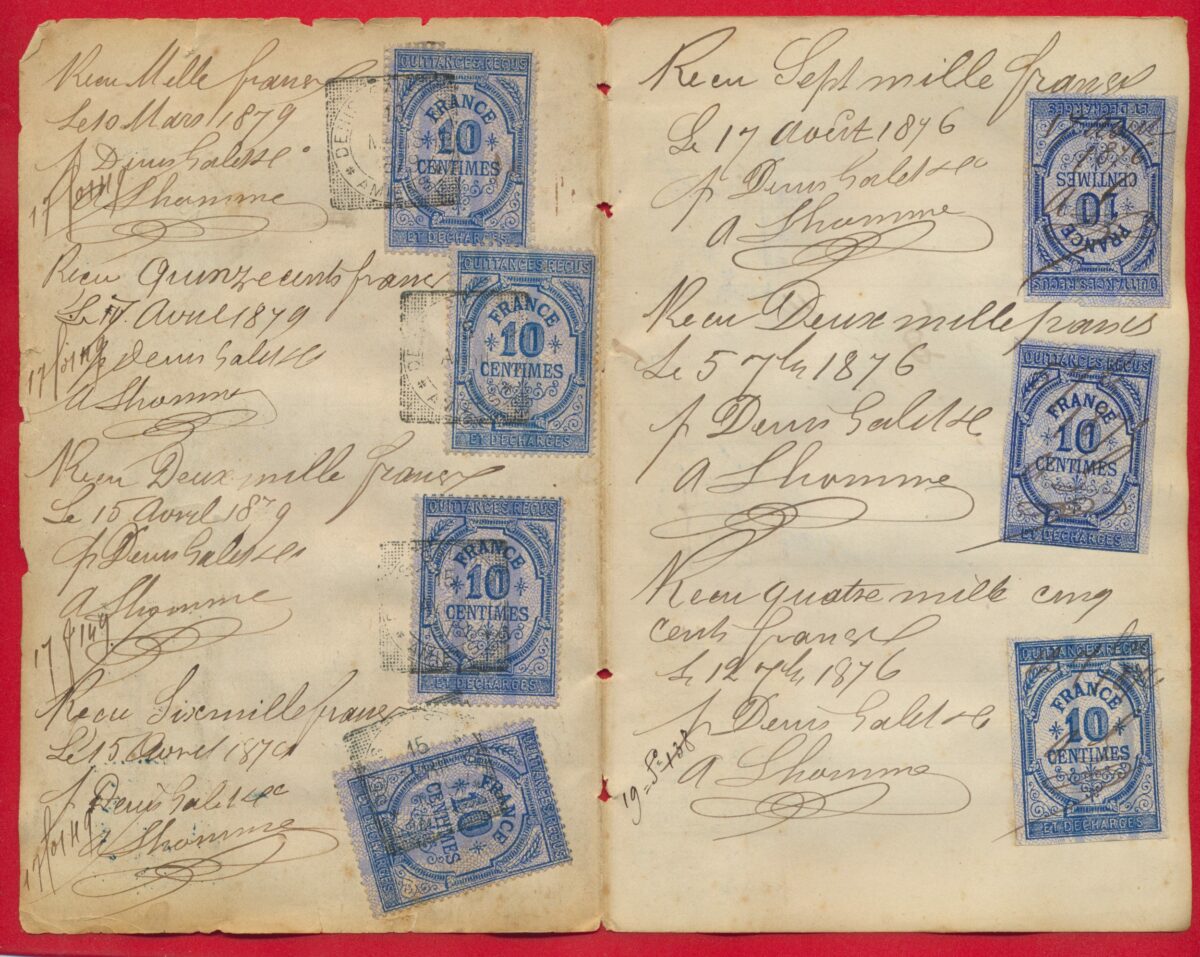 Recu Mille francs
Le 10 Mars 1879
p Denis Galet & Co
A Lhomme
QUITTANCES.REÇUS
FRANCE
10
CENTIMES
ET DECHARGES
Recu Quinze cents francs
Le 17 Avril 1879
p Denis Galet & Co
A Lhomme
QUITTANCES.REÇUS
FRANCE
10
CENTIMES
ET DECHARGES
Recu Deux mille francs
Le 15 Avril 1879
p Denis Galet & Co
A Lhomme
QUITTANCES.REÇUS
FRANCE
10
CENTIMES
ET DECHARGES
Recu Six mille francs
Le 15 Avril 1879
p Denis Galet & Co
A Lhomme
QUITTANCES.REÇUS
FRANCE
10
CENTIMES
ET DECHARGES
Recu Sept mille francs
Le 17 Août 1876
p Denis Galet & Co
A Lhomme
QUITTANCES.REÇUS
FRANCE
10
CENTIMES
ET DECHARGES
1876
Recu Deux mille francs
Le 5 7bre 1876
p Denis Galet & Co
A Lhomme
QUITTANCES.REÇUS
FRANCE
10
CENTIMES
ET DECHARGES
Recu quatre mille cinq
cents francs
Le 12 7bre 1876
p Denis Galet & Co
A Lhomme
QUITTANCES.REÇUS
FRANCE
10
CENTIMES
ET DECHARGES